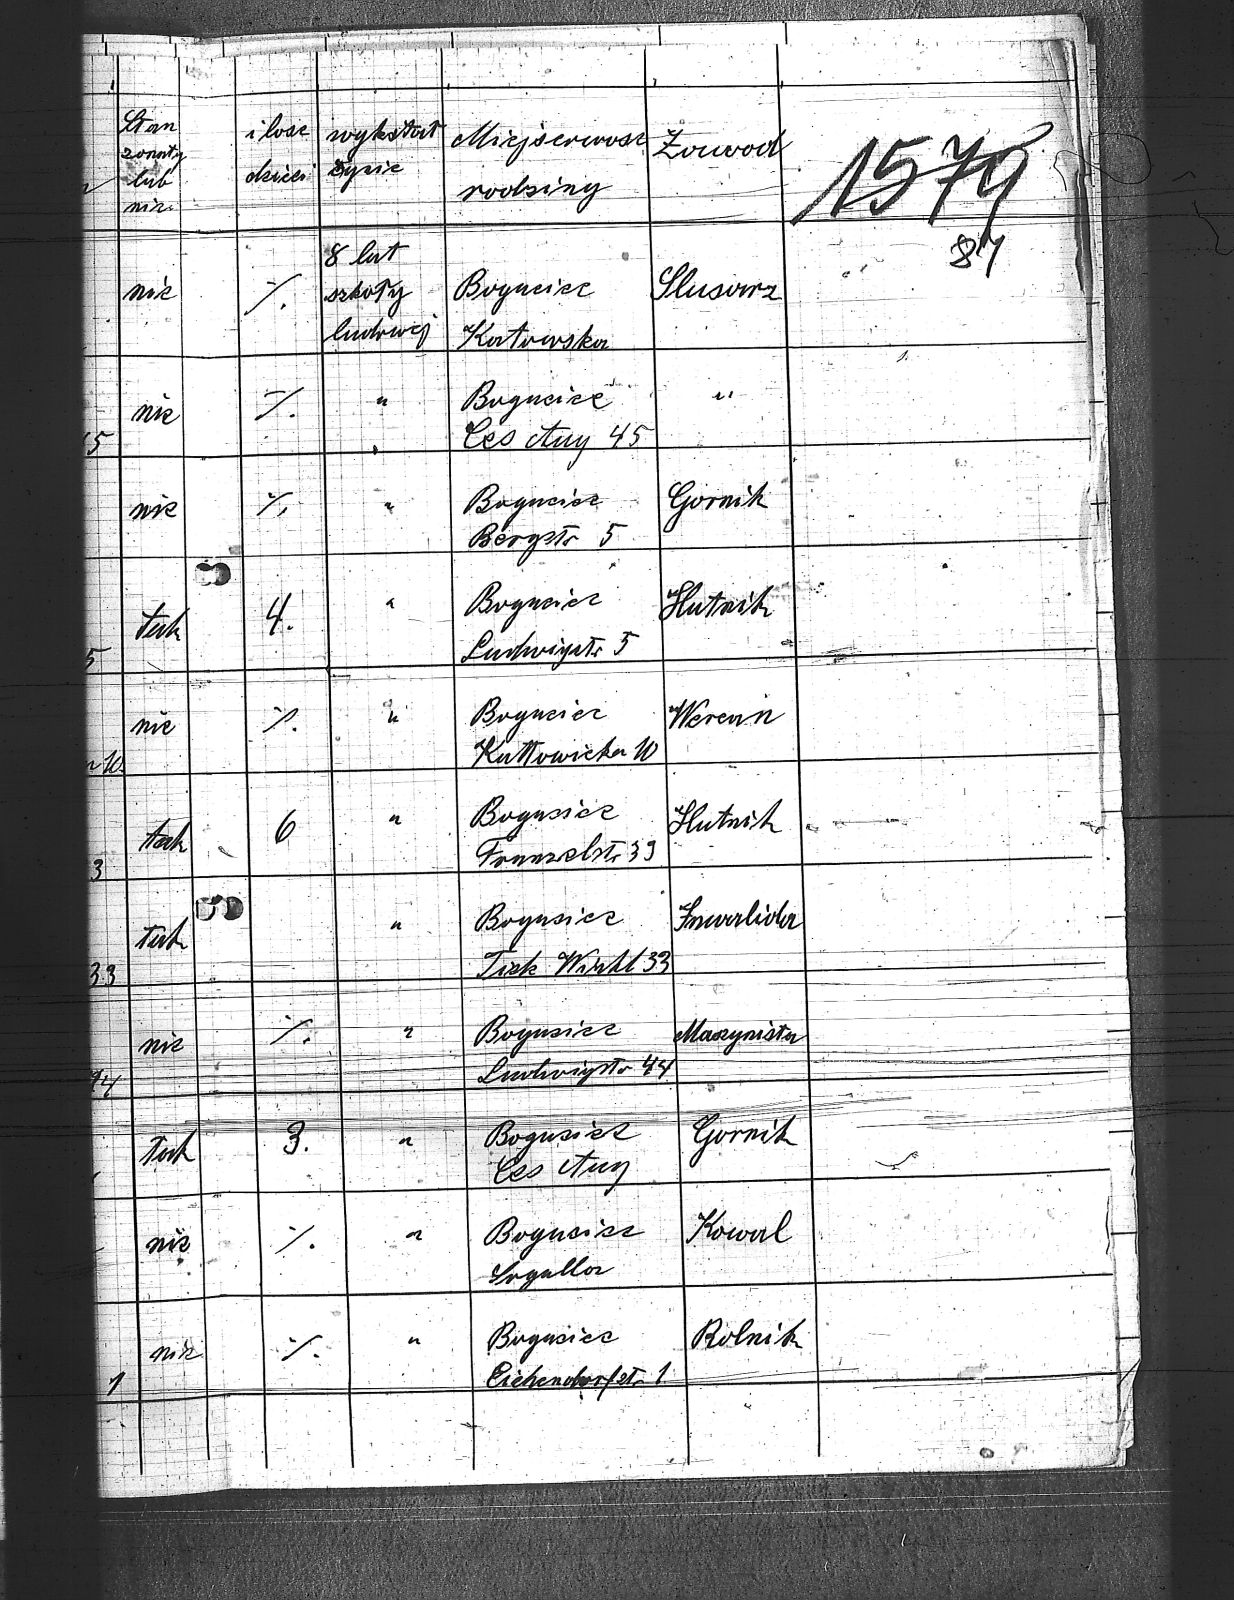 Stan zonaty lub nie
ilosc dzieci
wykształ cynie
Miejscowosc rodziny
Zawod
1579
87
nie ·/. 8 lat szkoły ludowej Bogucice Katowska Slusarz
5 nie ·/. " Bogucice Ces Aug 45 "
nie ·/. " Bogucice Bergstr 5 Gornik
5 tak 4. " Bogucice Ludwigstr 5 Hutnik
10 nie ·/. " Bogucice Kattowicka 10
3 tak 6 " Bogucice 33 Hutnik
33 tak " Bogucice 33 Inwalida
44 nie ·/. " Bogucice Ludwigstr 44 Maszynista
tak 3. " Bogucice Ces Aug Gornik
nie ·/. " Bogucice Kowal
1 nie ·/. " Bogucice Eichendorfstr 1 Rolnik